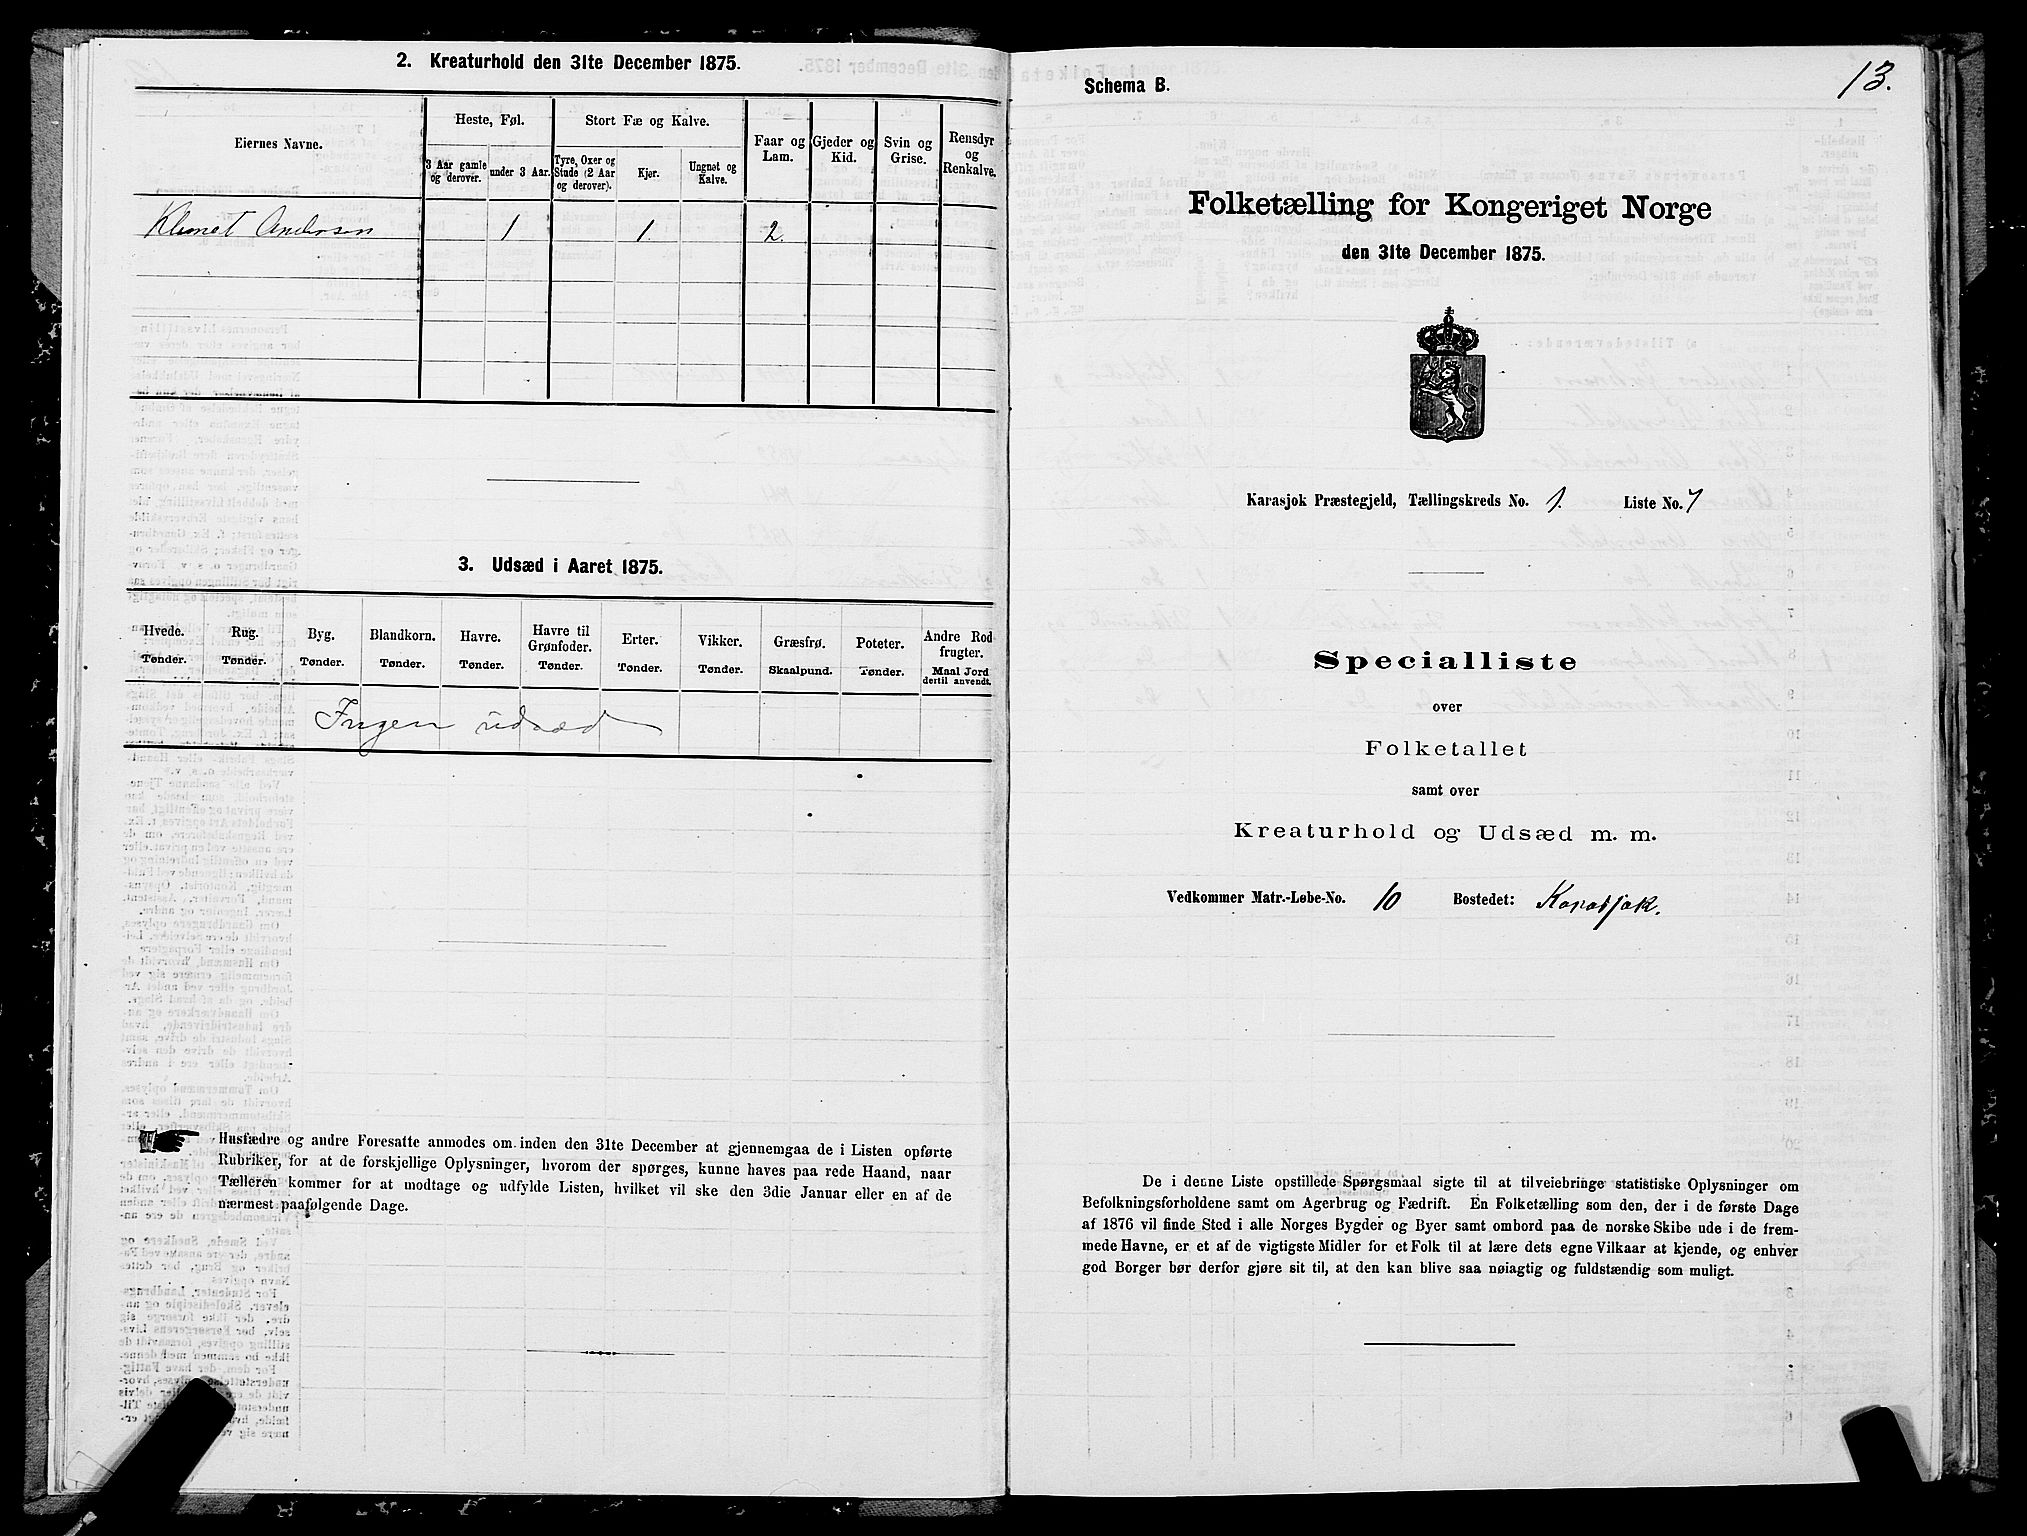 2. Kreaturhold den 31te December 1875.
Eiernes Navne.
Heste, Føl.
Stort Fæ og Kalve.
Faar og Lam.
Gjeder og Kid.
Svin og Grise.
Rensdyr og Renkalve.
3 Aar gamle og derover.
under 3 Aar.
Tyre, Oxer og Stude (2 Aar og derover).
Kjør.
Ungnøt og Kalve.
Klemet Andersen 1 1. 2.
3. Udsæd i Aaret 1875.
Hvede. Rug. Byg. Blandkorn. Havre. Havre til Grønfoder. Erter. Vikker. Græsfrø. Poteter. Andre Rodfrugter.
Tønder. Tønder. Tønder. Tønder. Tønder. Tønder. Tønder. Tønder. Skaalpund. Tønder. Maal Jord dertil anvendt.
Ingen udsæd
Husfædre og andre Foresatte anmodes om inden den 31te December at gjennemgaa de i Listen opførte
Rubriker, for at de forskjellige Oplysninger, hvorom der spørges, kunne haves paa rede Haand, naar
Tælleren kommer for at modtage og udfylde Listen, hvilket vil ske den 3die Januar eller en af de
nærmest paafølgende Dage.
13.
Schema B.
Folketælling for Kongeriget Norge
den 31te December 1875.
Karasjok Præstegjeld, Tællingskreds No. 1. Liste No. 7
Specialliste
over
Folketallet
samt over
Kreaturhold og Udsæd m. m.
Vedkommer Matr.-Løbe-No. 10 Bostedet: Karasjok.
De i denne Liste opstillede Spørgsmaal sigte til at tilveiebringe statistiske Oplysninger om
Befolkningsforholdene samt om Agerbrug og Fædrift. En Folketælling som den, der i de første Dage
af 1876 vil finde Sted i alle Norges Bygder og Byer samt ombord paa de norske Skibe ude i de frem-
mede Havne, er et af de vigtigste Midler for et Folk til at lære dets egne Vilkaar at kjende, og enhver
god Borger bør derfor gjøre sit til, at den kan blive saa nøiagtig og fuldstændig som muligt.